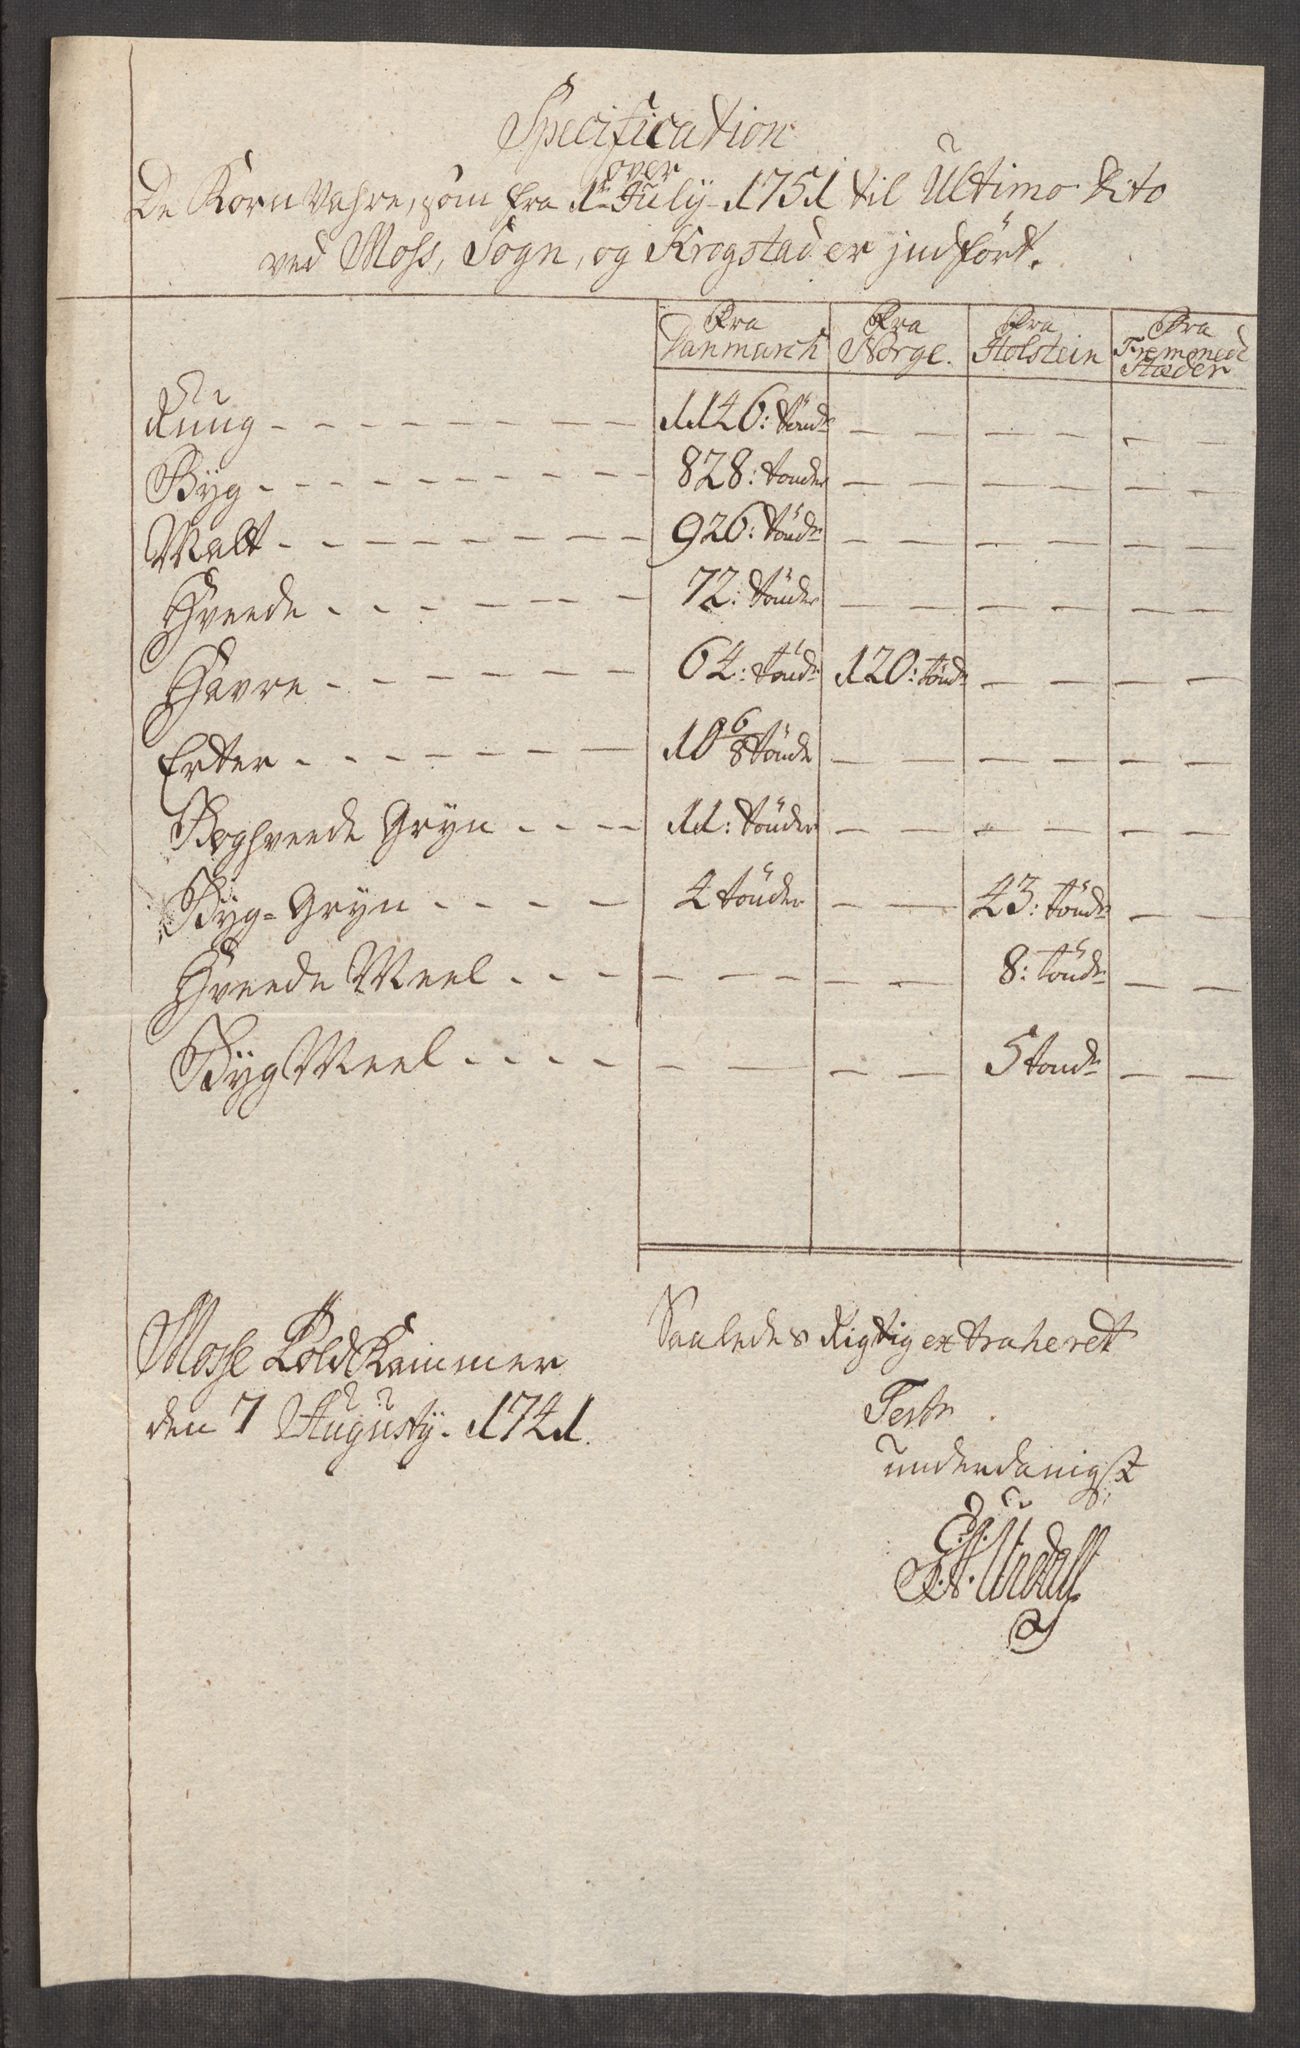 Specification
over
De Korn Vahre, som fra 1t July 1751 til Ultimo dito
ved Moss, Sogn, og Krogstad er jndført.
Fra Danmarch Fra Norge. Fra Holstein Fra Fremmede Stæder
Rug - - - - - - - - 1146: Tönd: — — — — — —
Byg - - - - - - - - 828: Tönder — — — — — —
Malt - - - - - - - - 926: Tönd: — — — — — —
Hveede - - - - - - 72: Tönder — — — — — —
Havre - - - - - - 64: Tönd: 120: Tönd: — — — —
Erter - - - - - - 10 6/8 Tönde — — — — — —
Boghveede Gryn - - - - 11: Tönder — — — — — —
Byg-Gryn - - - - 4 Tönder — — 43: Tönd: — —
Hveede Meel - - - — — — — 8: Tönd: — —
Byg Meel - - - - — — — — 5 Tönd: — —
Mosse Told Kammer
den 7 Augusty. 1741.
Saaledes Rigtig extraheret
Test:
underdanigst